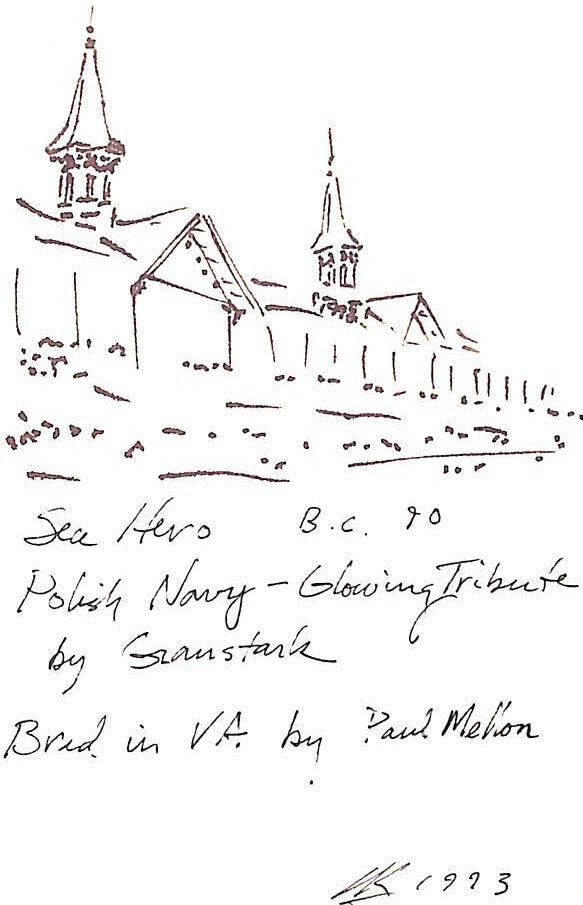 Sea Hero B.C. 90
Polish Navy - Glowing Tribute
by Graustark
Bred in VA. by Paul Mellon
1993